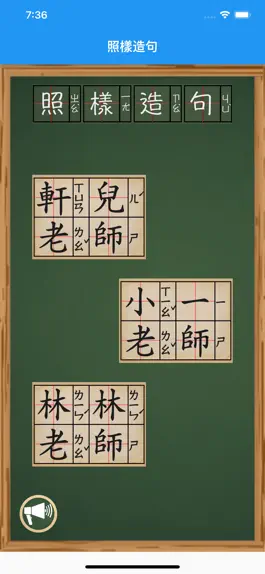 7:36
照樣造句
照ㄓㄠˋ樣ㄧㄤˋ造ㄗㄠˋ句ㄐㄩˋ
軒ㄒㄩㄢ兒ㄦˊ
老ㄌㄠˇ師ㄕ
小ㄒㄧㄠˇ一ㄧ
老ㄌㄠˇ師ㄕ
林ㄌㄧㄣˊ林ㄌㄧㄣˊ
老ㄌㄠˇ師ㄕ